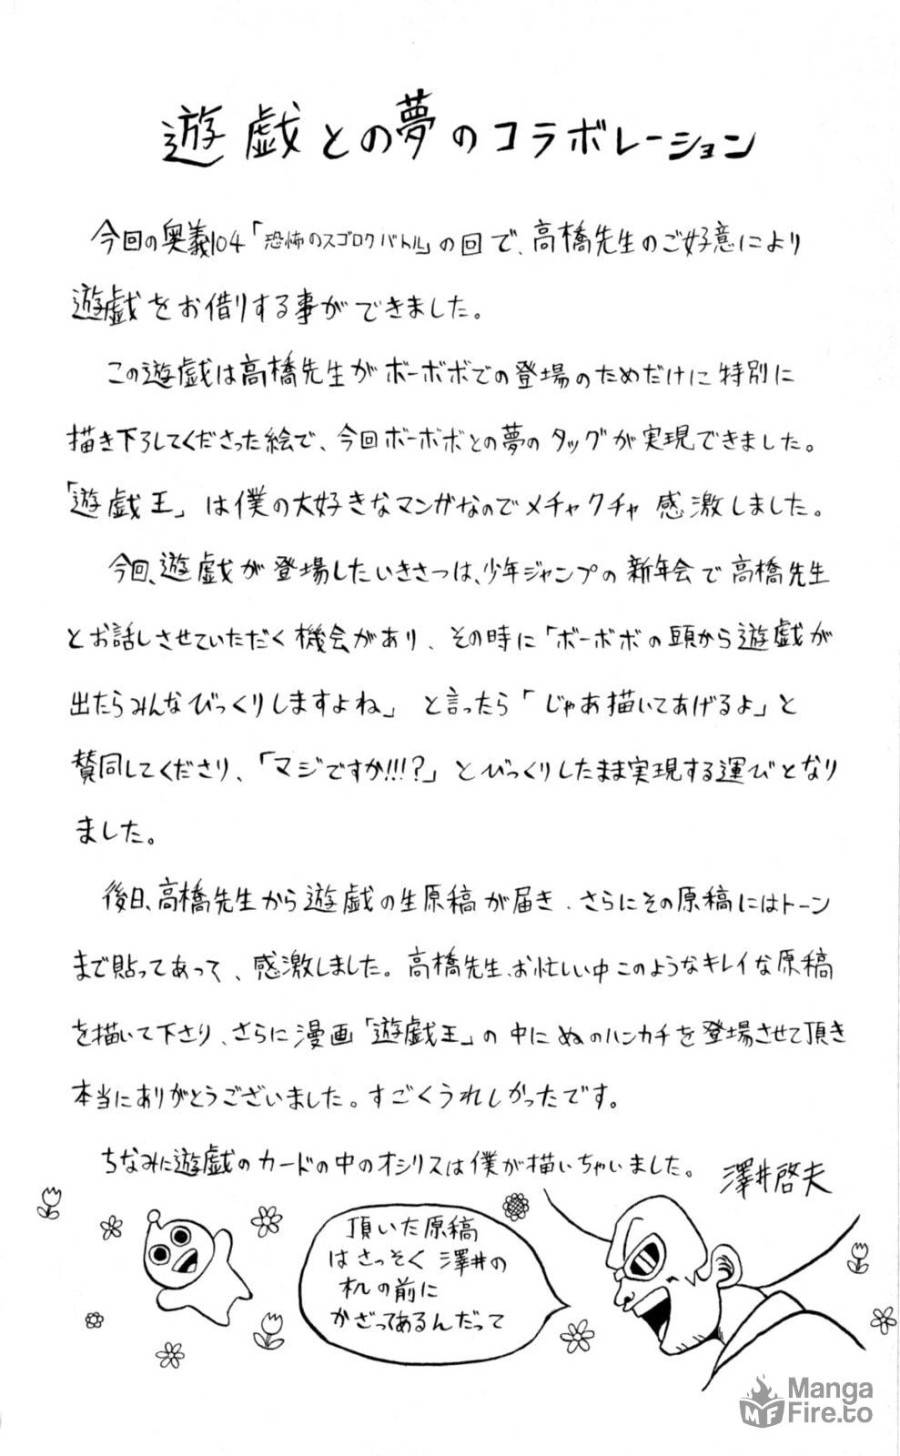 遊戯との夢のコラボレーション
今回の奥義104「恐怖のスゴロクバトル」の回で、高橋先生のご好意により
遊戯をお借りする事ができました。
この遊戯は高橋先生がボーボボでの登場のためだけに特別に
描き下ろしてくださった絵で、今回ボーボボとの夢のタッグが実現できました。
「遊戯王」は僕の大好きなマンガなのでメチャクチャ感激しました。
今回、遊戯が登場したいきさつは、少年ジャンプの新年会で高橋先生
とお話しさせていただく機会があり、その時に「ボーボボの頭から遊戯が
出たらみんなびっくりしますよね」と言ったら「じゃあ描いてあげるよ」と
賛同してくださり、「マジですか!!!?」とびっくりしたまま実現する運びとなり
ました。
後日、高橋先生から遊戯の生原稿が届き、さらにその原稿にはトーン
まで貼ってあって、感激しました。高橋先生、お忙しい中このようなキレイな原稿
を描いて下さり、さらに漫画「遊戯王」の中にぬのハンカチを登場させて頂き
本当にありがとうございました。すごくうれしかったです。
ちなみに遊戯のカードの中のオシリスは僕が描いちゃいました。
澤井啓夫
頂いた原稿
はさっそく澤井の
机の前に
かざってあるんだって
Manga
Fire.to
MF